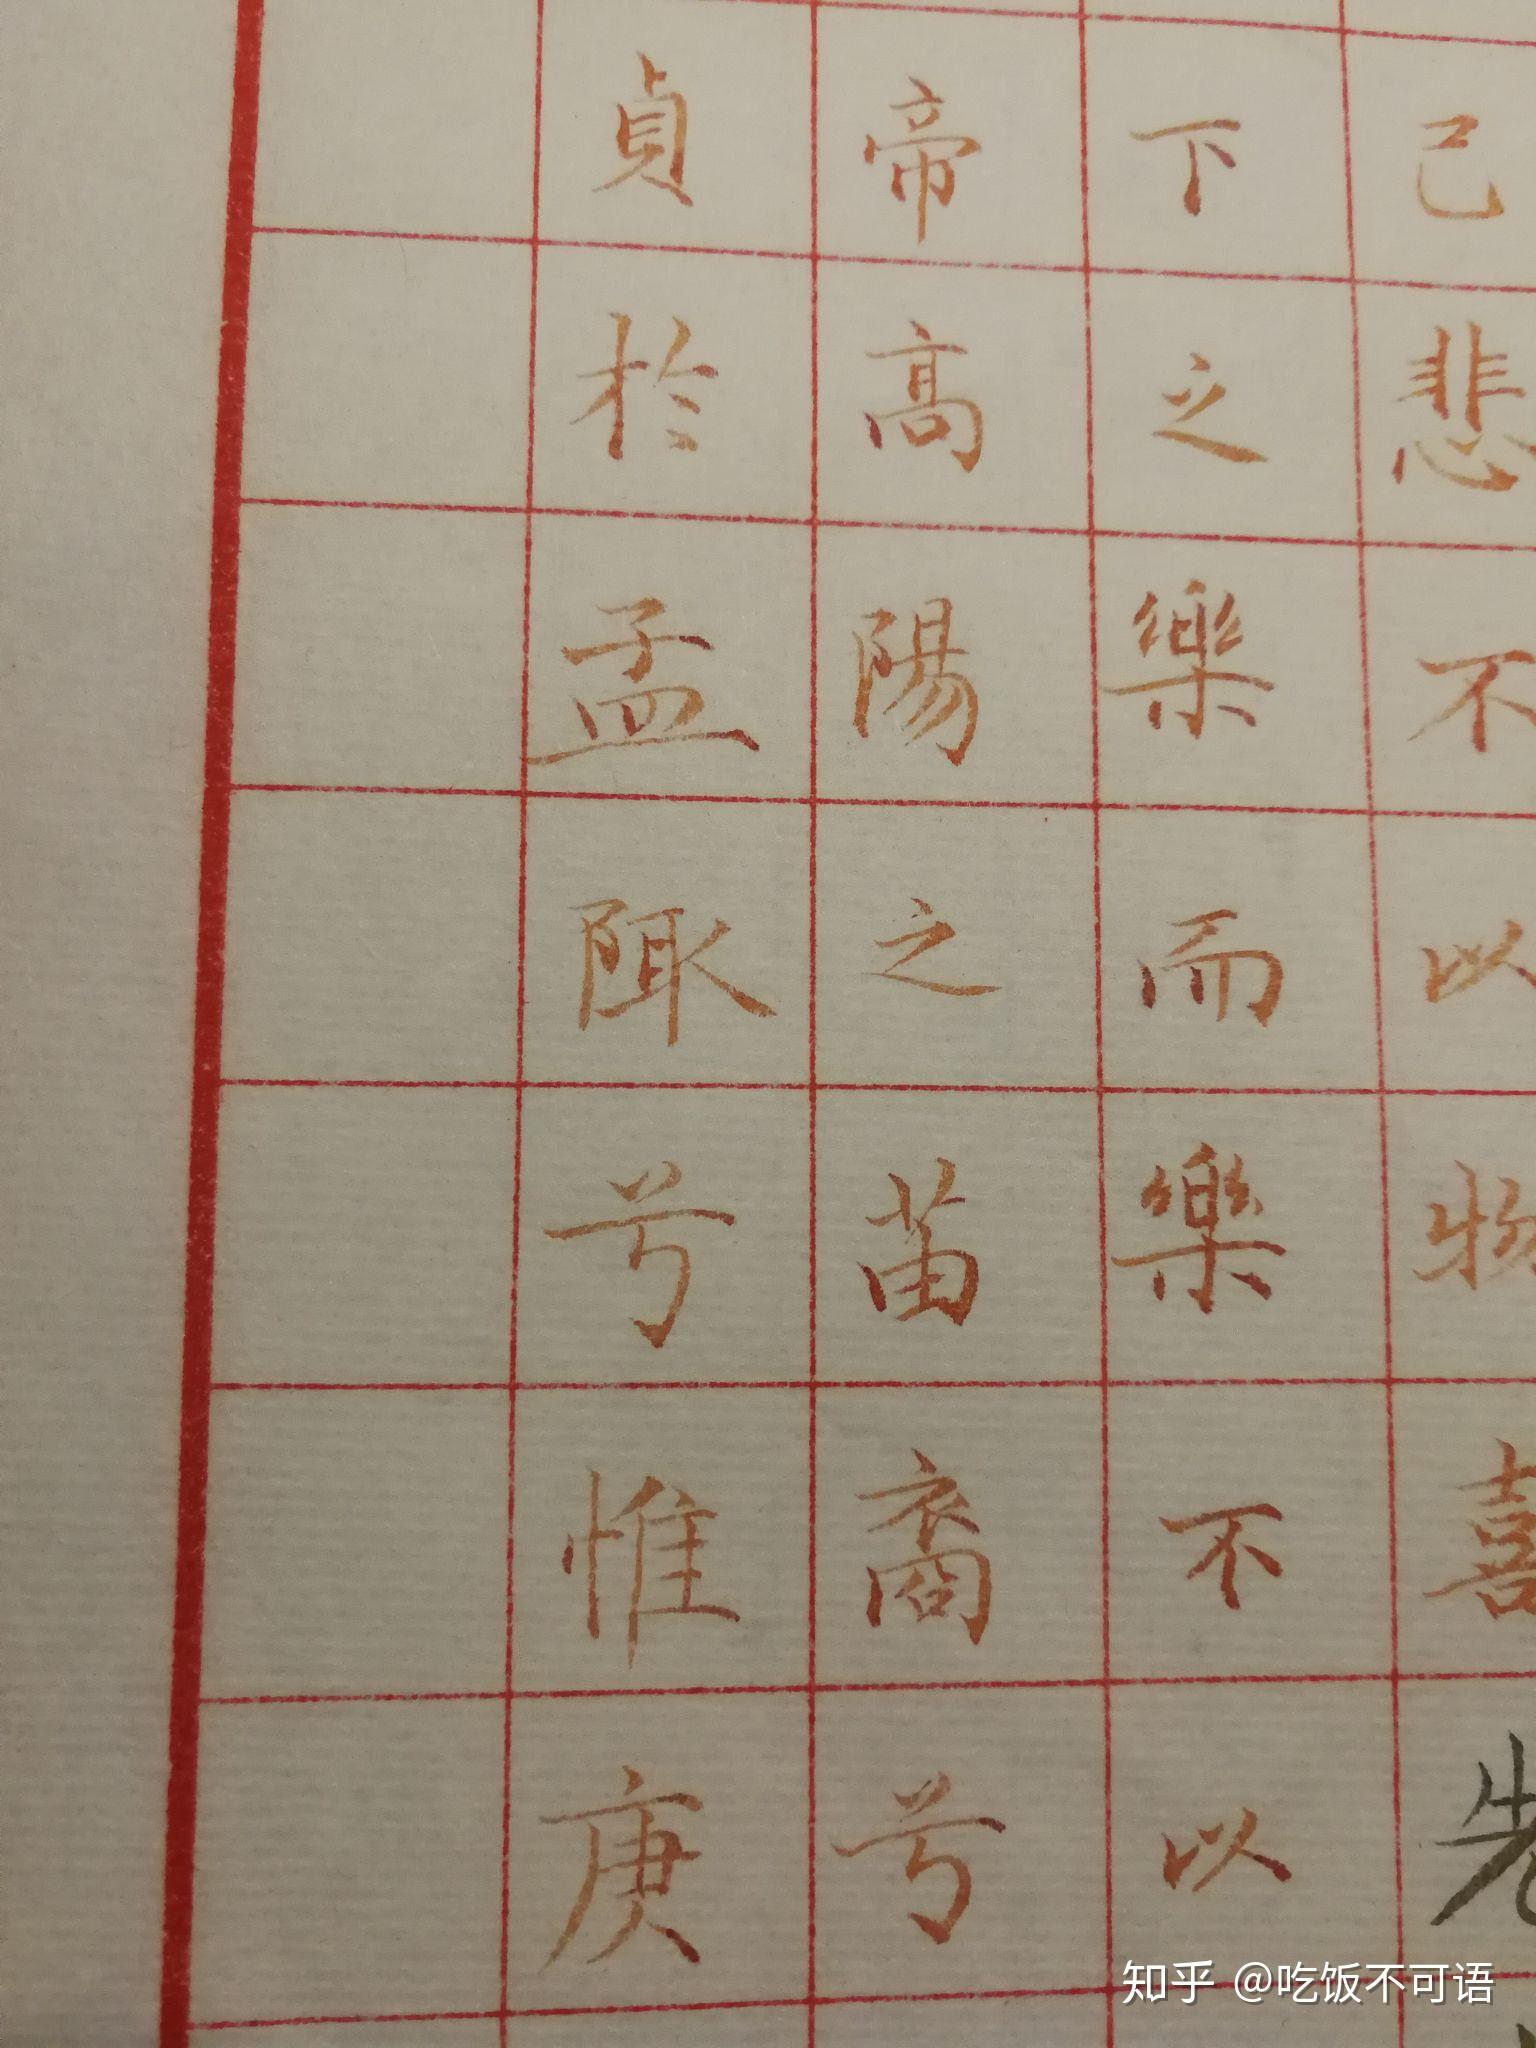 己悲不以物喜先
下之樂而樂不以
帝高陽之苗裔兮
貞於孟陬兮惟庚
知乎 @吃饭不可语